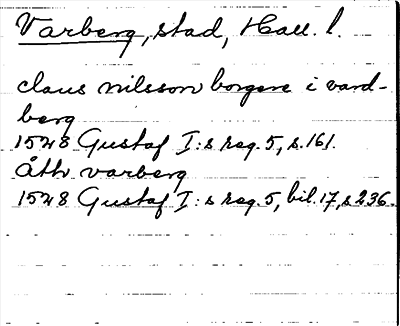 Varberg, stad, Hall. l.
claus nilsson borgere i vard-
berg
1528 Gustaf I:s reg. 5, s. 161.
Åth varberg
1528 Gustaf I:s reg. 5, bil. 17, s 236.